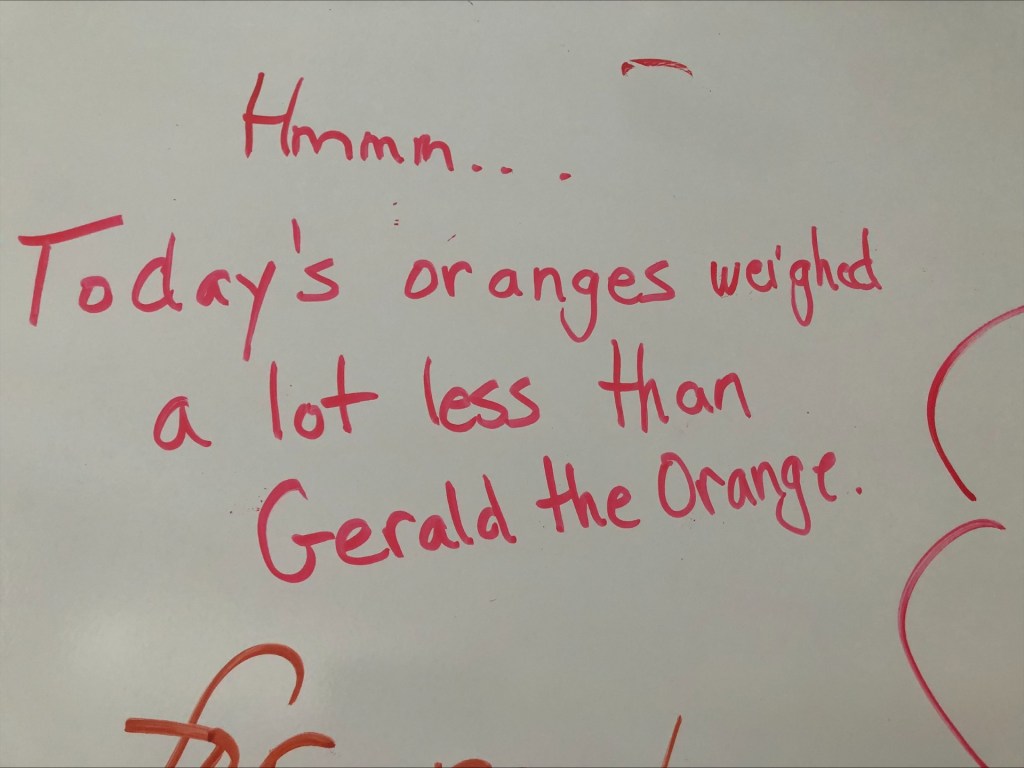 Hmmm....
Today's oranges weighed
a lot less than
Gerald the Orange.